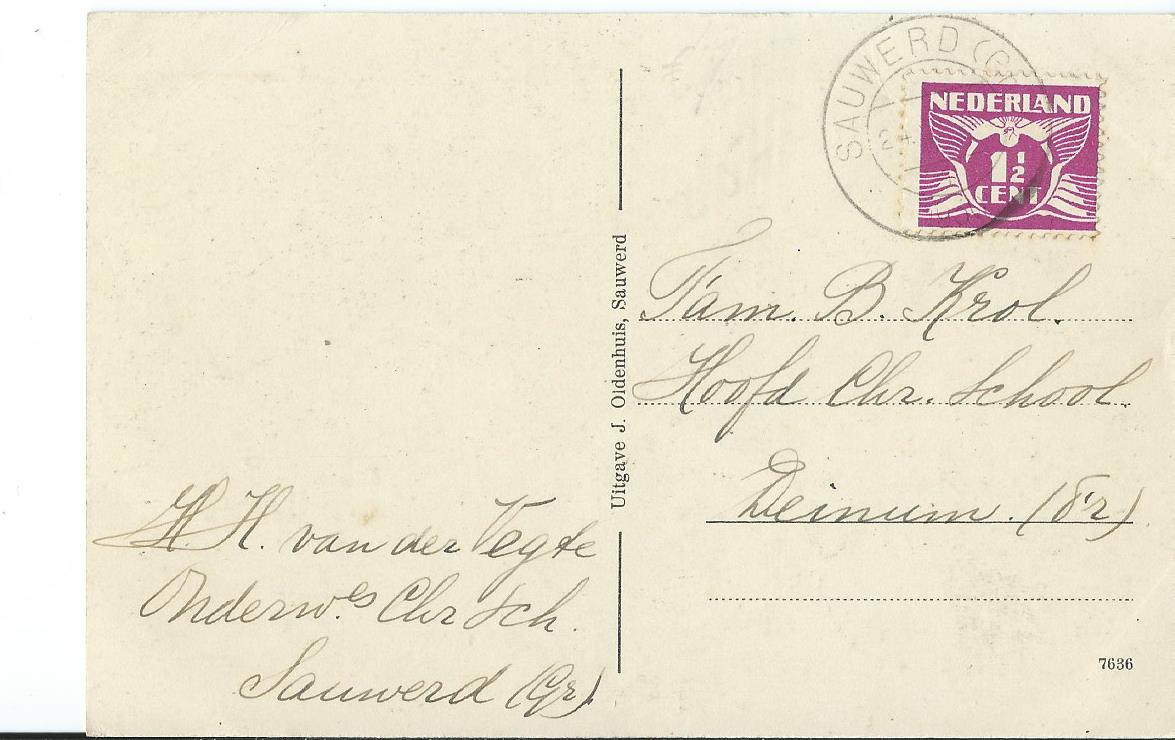 SAUWERD (G
NEDERLAND
1½
CENT
Fam. B. Krol.
Hoofd Chr. School.
Deinum. (Fr)
Uitgave J. Oldenhuis, Sauwerd
H. H. van der Vegte
Onderw.es Chr Sch.
Sauwerd (Gr)
7636